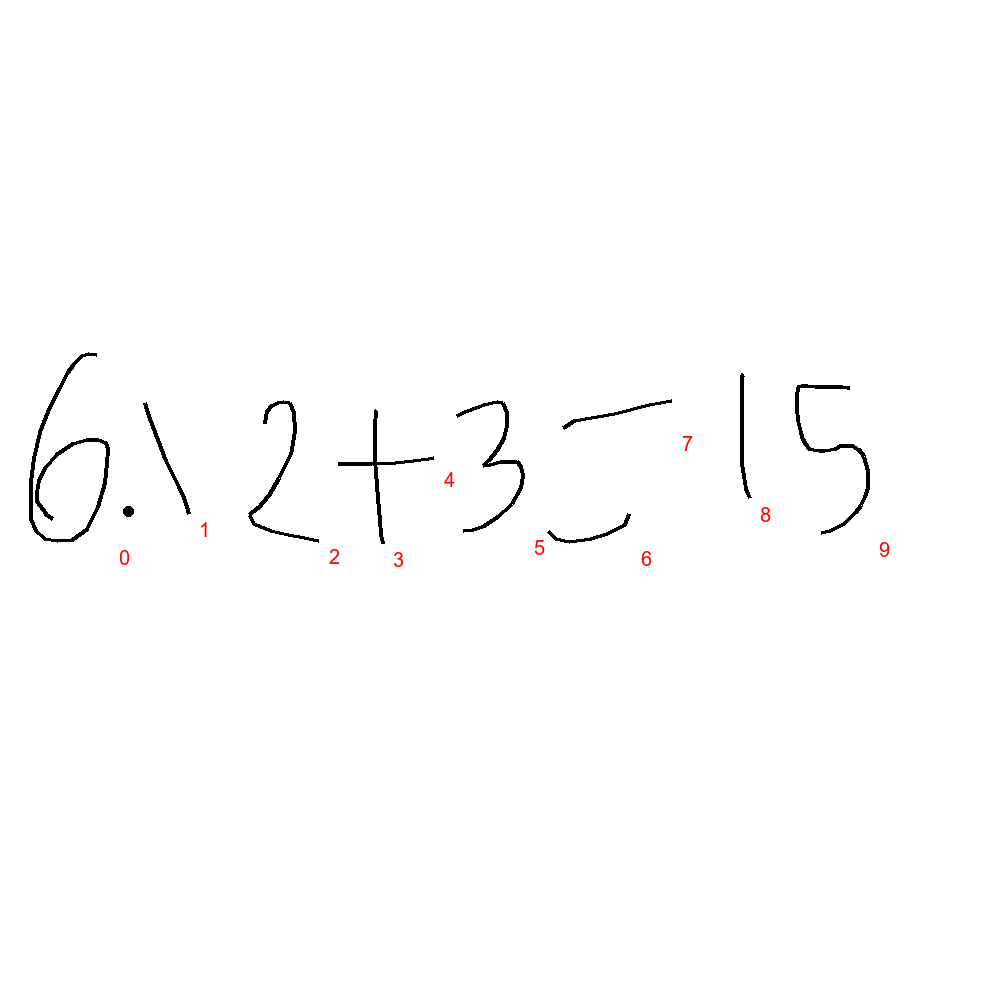 6. 12+3=15
0 1 2 3 4 5 6 7 8 9